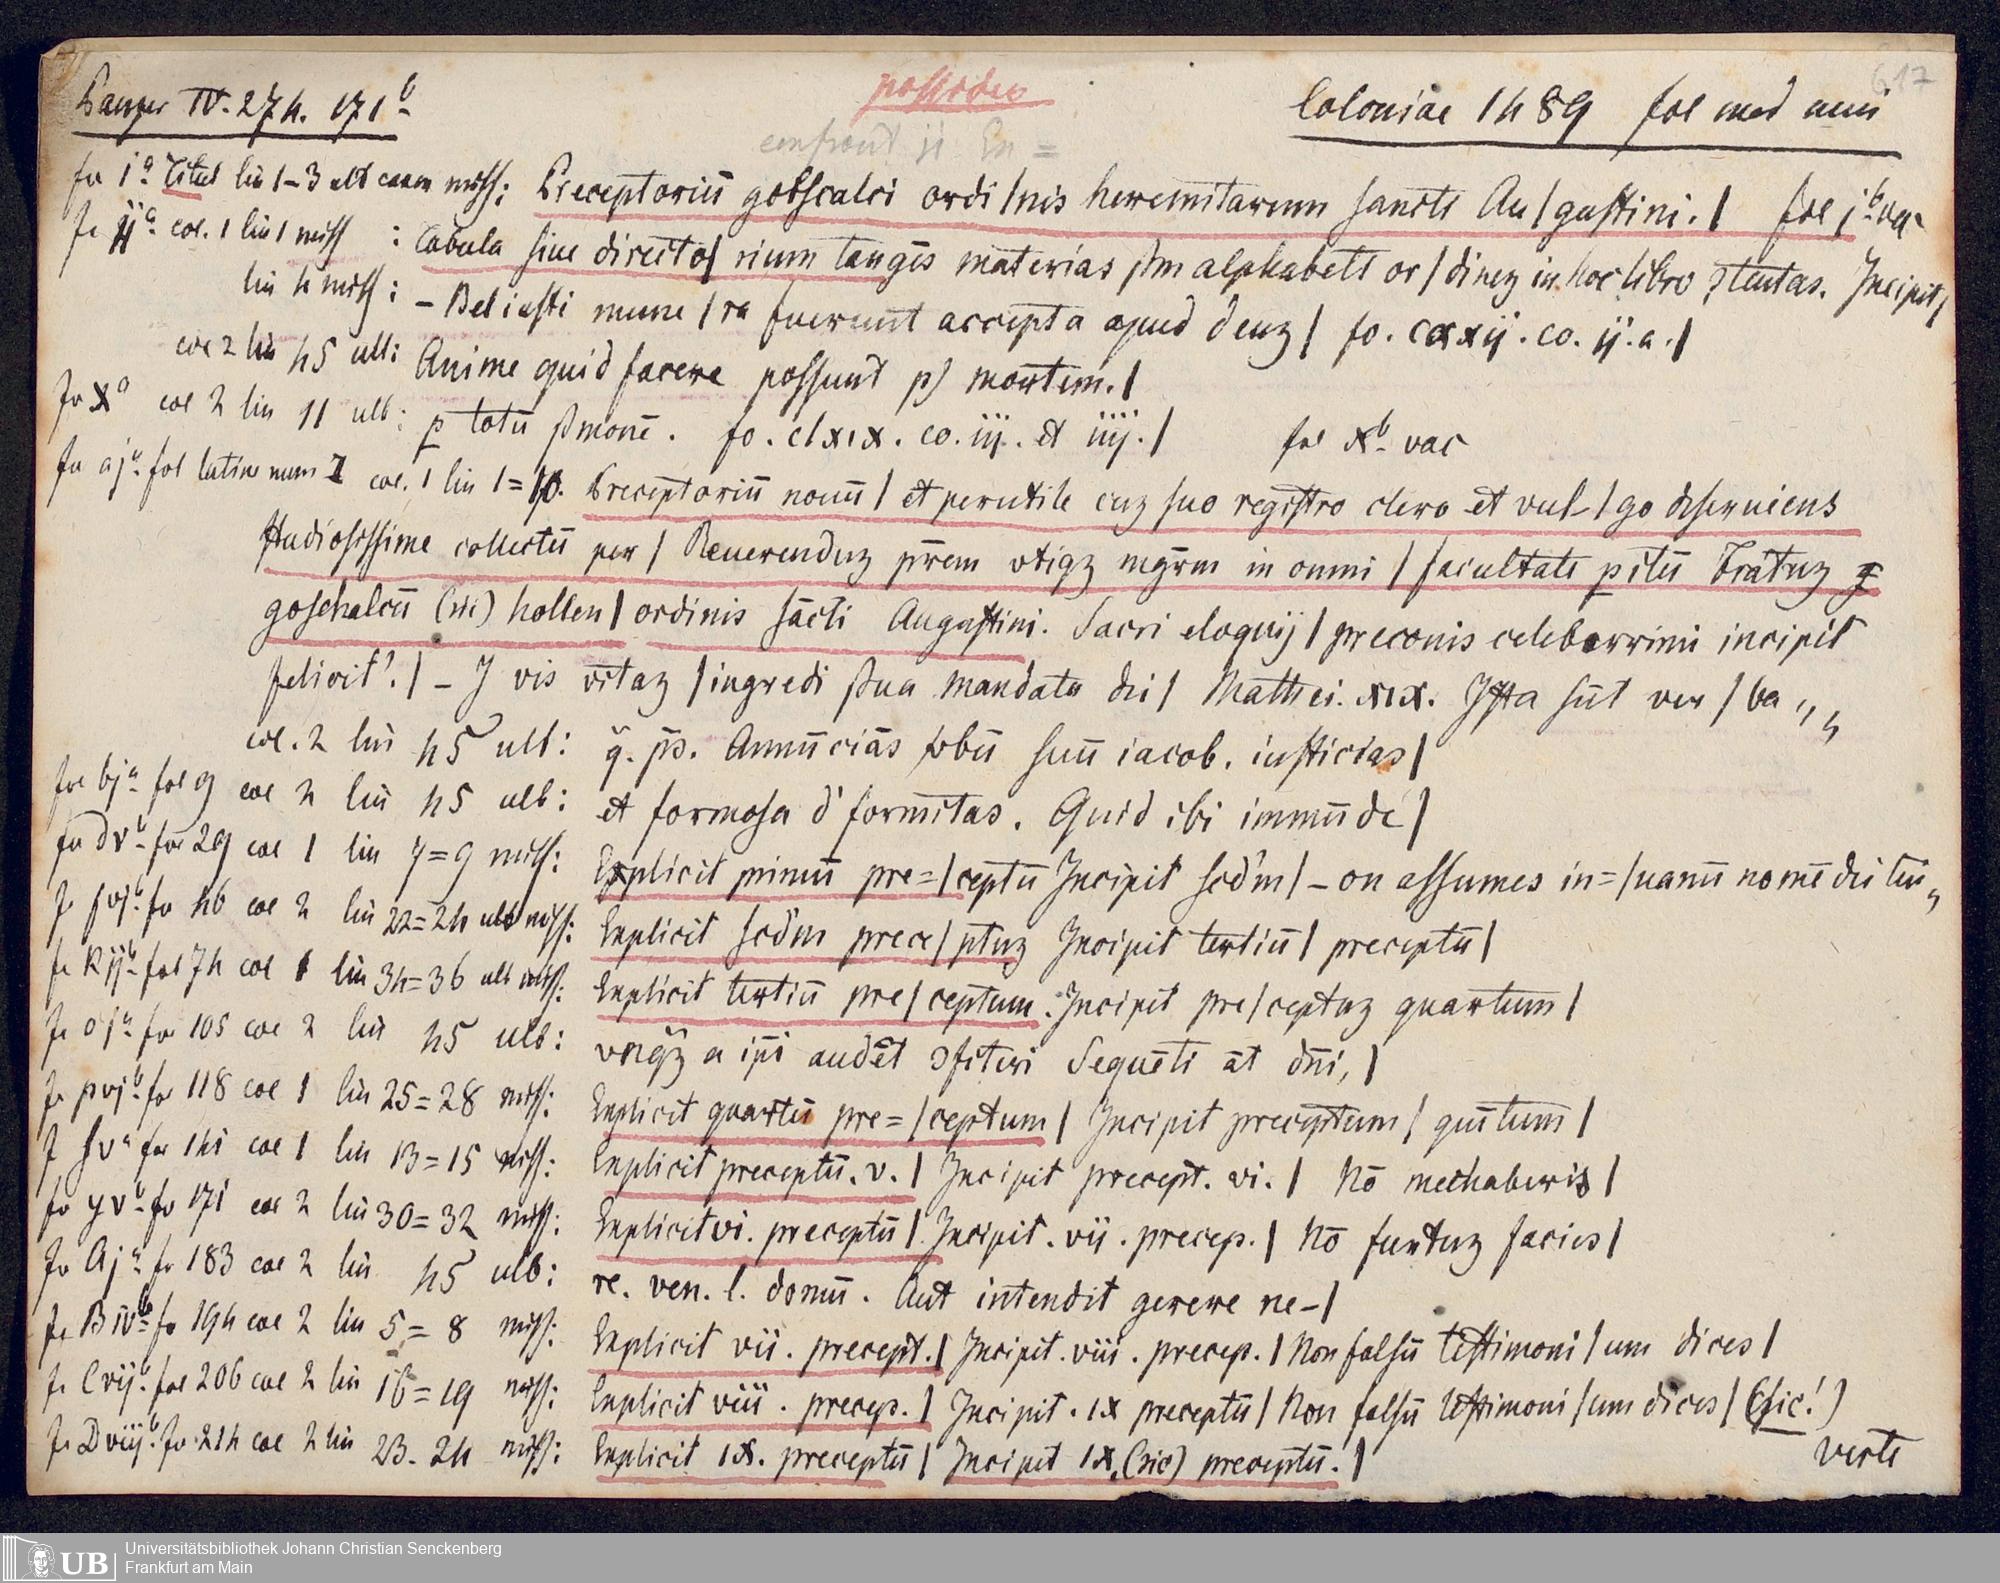 Panzer IV. 274. 171b
possideo
617
Coloniae 1489 fol med min
confront
fo ja Titel lin 1–3 alt miss: Preceptoriū gotscalci ordi/nis heremitarum sancti Au/gustini./ fol jb vac
fo ija col. 1 lin 1 miss : Tabula siue directo/rium tangēs materias ßm alphabeti or/dinez in hoc libro ɔtentas. Incipit/
lin 4 miss: – Bel iusti mune/ra fuerunt accepta apud deuz/ fo. cxxij. co. ij. a./
col 2 lin 45 ult: Anime quid facere possunt p) mortem./
fo xa col 2 lin 11 ult: p totū ßmonē. fo. clxix. co. iij. et iiij./ fol xb vac
fo aja fol latine num I col. 1 lin 1=10. Preceptoriū nouū/ et perutile cuz suo registro clero et vul-/go deseruiens
studiosissime collectū per/ Reuerenduz prēm vtiqz mgrm in omni/ facultate pitū Fratruz
goschalcū (sic) hollen/ ordinis sācti Augustini. Sacri eloquij/ preconis celeberrimi incipit
felicit'./ – I vis vitaz/ingredi ßua mandata dei/ Mathei. xix. Ista sūt ver/ba „„
col. 2 lin 45 ult: q. ps. Annūciās vbū suū iacob. iusticias/
fol bja fol 9 col 2 lin 45 ult: et formosa d'formitas. Quid ibi immūde/
fo dvb fol 29 col 1 lin 7=9 miss: Explicit primū pre=/ceptū Incipit scdm/ – on assumes in=/uanū nomē dei tuū „
fo fvjb fo 46 col 2 lin 22=24 ult miss: Explicit scdm prece/ptuz Incipit tertiū/ preceptū/
fo kijb fol 74 col 1 lin 34=36 ult miss: Explicit tertiū pre/ceptum. Incipit pre/ceptuz quartum/
fo oja fo 105 col 2 lin 45 ult: vnq̄z a ipi audēt ɔfiteri Sequēti āt dni,/
fo pvjb fo 118 col 1 lin 25=28 miss: Explicit quartū pre=/ceptum/ Incipit preceptum/ quītum/
fo sva fo 141 col 1 lin 13=15 miss: Explicit preceptū. v./ Incipit precept. vi./ Nō mechaberis/
fo yvb fo 171 col 2 lin 30=32 miss: Explicit vi. preceptū/ Incipit. vij. precep./ Nō furtuz facies/
fo Aja fo 183 col 2 lin 45 ult: re. ven. l. domū. Aut intendit gerere ne–/
fo Bivb fo 194 col 2 lin 5=8 miss: Explicit vii. precept./ Incipit. viii. precep./ Non falsū testimoni/um dices/
fo Cvijb fol 206 col 2 lin 16=19 miss: Explicit viii. precep./ Incipit. ix preceptū/ Non falsū testimoni/um dices/ (sic!)
fo Dviijb fo 214 col 2 lin 23. 24 miss: Explicit ix. preceptū/ Incipit ix, (sic) preceptū./
verte
UB
Universitätsbibliothek Johann Christian Senckenberg
Frankfurt am Main